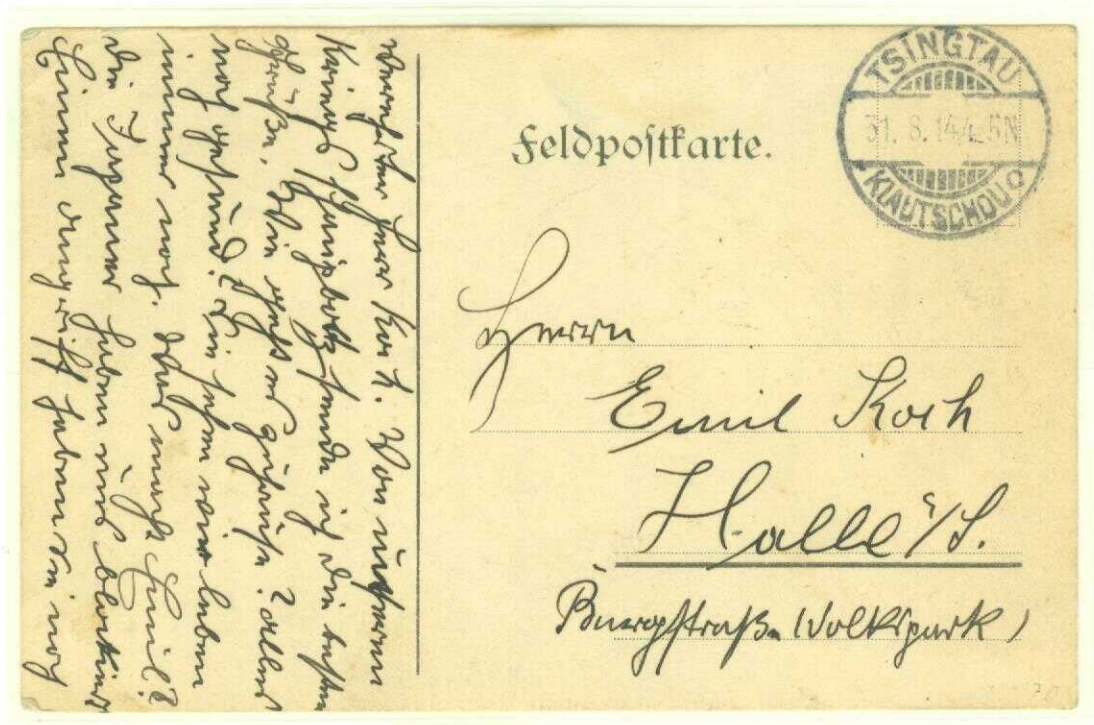 Feldpostkarte.
TSINGTAU
31. 8. 14 4-5N
KIAUTSCHOU
Herrn
Emil Koch
Halle a/S.
Burgstraße (Volkspark)
Verehrter Herr Koch. Von unserem
Kriegsschauplatz sende ich die besten
Grüße. Wie geht es zuhause? alles
noch gesund? Sie sehen wir leben
immer noch. Was macht Emil?
Die Japaner haben uns blockiert
Einen Angriff haben sie noch